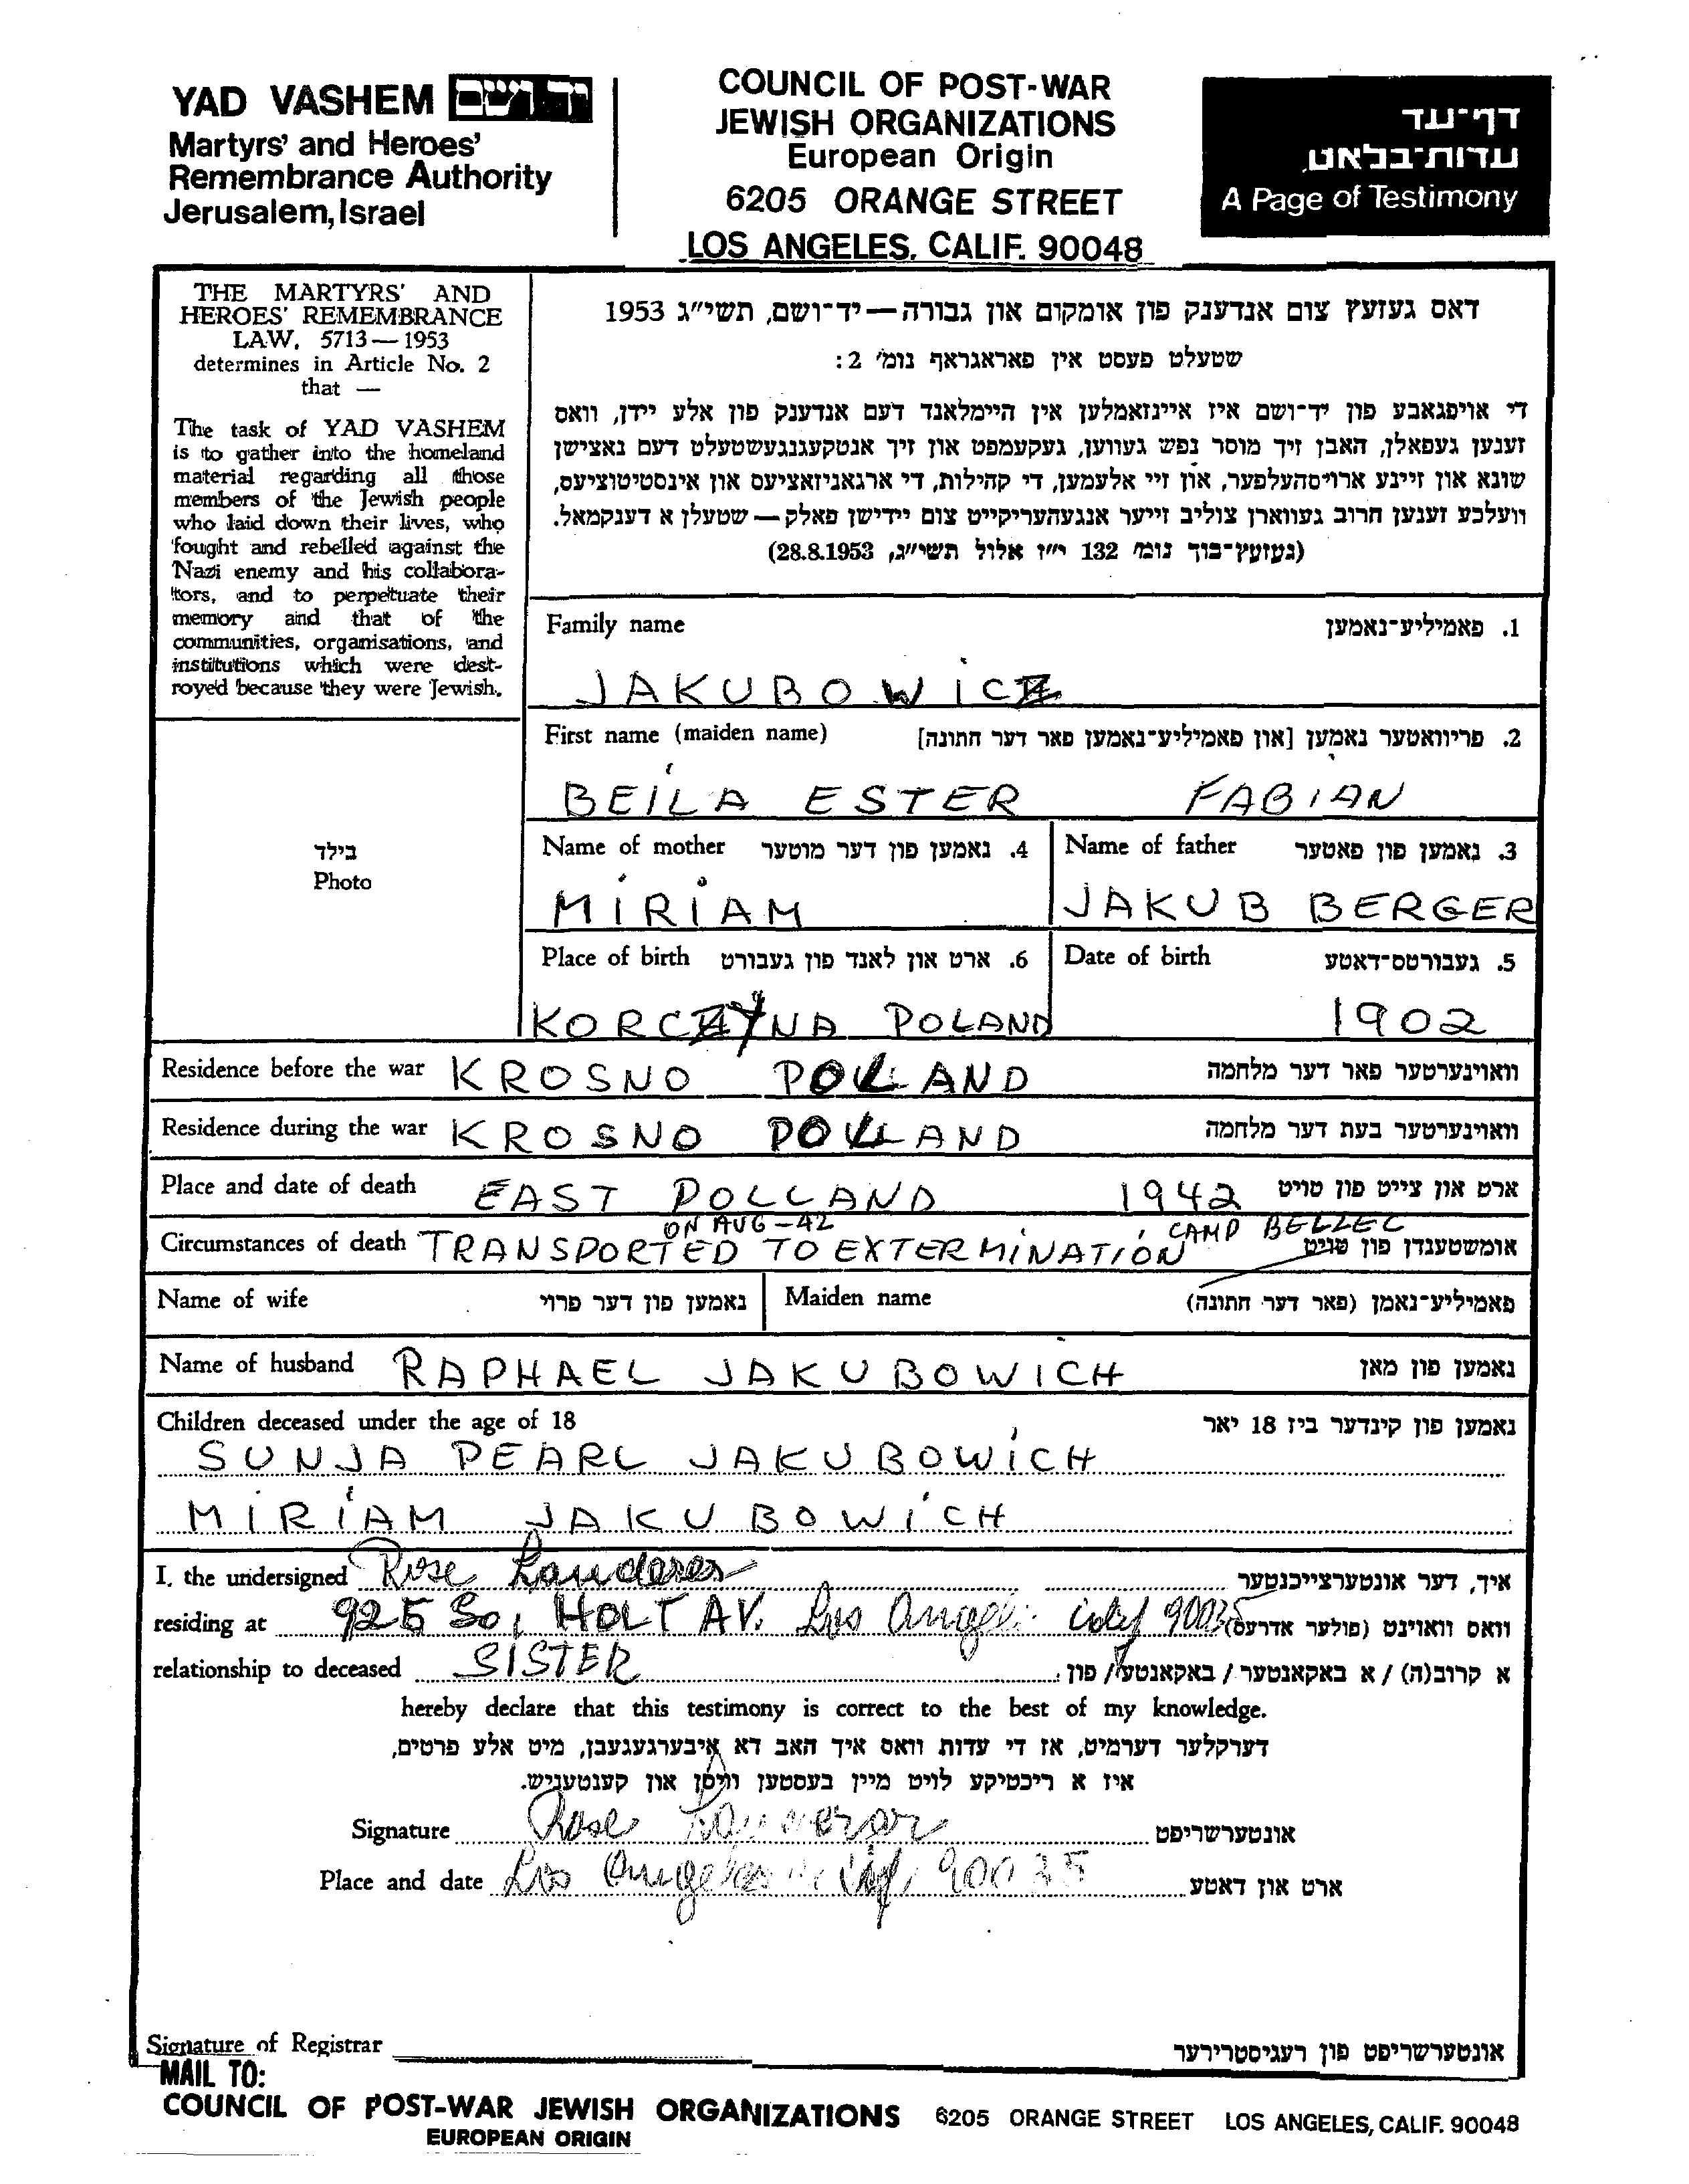 YAD VASHEM יד ושם
Martyrs' and Heroes'
Remembrance Authority
Jerusalem, Israel
COUNCIL OF POST-WAR
JEWISH ORGANIZATIONS
European Origin
6205 ORANGE STREET
LOS ANGELES, CALIF. 90048
דף-עד
עדות-בלאט
A Page of Testimony
THE MARTYRS' AND
HEROES' REMEMBRANCE
LAW, 5713—1953
determines in Article No. 2
that —
The task of YAD VASHEM
is to gather into the homeland
material regarding all those
members of the Jewish people
who laid down their lives, who
fought and rebelled against the
Nazi enemy and his collabora-
tors, and to perpetuate their
memory and that of the
communities, organisations, and
institutions which were dest-
royed because they were Jewish.
דאס געזעץ צום אנדענק פון אומקום און גבורה — יד-ושם, תשי"ג 1953
שטעלט פעסט אין פאראגראף נומ' 2:
די אויפגאבע פון יד-ושם איז איינזאמלען אין היימלאנד דעם אנדענק פון אלע יידן, וואס
זענען געפאלן, האבן זיך מוסר נפש געווען, געקעמפט און זיך אנטקעגנגעשטעלט דעם נאצישן
שונא און זיינע ארויסהעלפער, און זיי אלעמען, די קהילות, די ארגאניזאציעס און אינסטיטוציעס,
וועלכע זענען חרוב געווארן צוליב זייער אנגעהעריקייט צום יידישן פאלק — שטעלן א דענקמאל.
(געזעץ-בוך נומ' 132 י"ז אלול תשי"ג, 28.8.1953)
Family name 1. פאמיליע-נאמען
JAKUBOWICZ
First name (maiden name) 2. פריוואטער נאמען [און פאמיליע-נאמען פאר דער חתונה]
BEILA ESTER FABIAN
Name of mother 4. נאמען פון דער מוטער Name of father 3. נאמען פון פאטער
MIRIAM JAKUB BERGER
Place of birth 6. ארט און לאנד פון געבורט Date of birth 5. געבורטס-דאטע
KORCZYNA POLAND 1902
בילד
Photo
Residence before the war KROSNO POLLAND וואוינערטער פאר דער מלחמה
Residence during the war KROSNO POLLAND וואוינערטער בעת דער מלחמה
Place and date of death EAST POLLAND 1942 ארט און צייט פון טויט
ON AUG-42 CAMP BELZEC
Circumstances of death TRANSPORTED TO EXTERMINATION אומשטענדן פון טויט
Name of wife נאמען פון דער פרוי Maiden name פאמיליע-נאמן (פאר דער חתונה)
Name of husband RAPHAEL JAKUBOWICH נאמען פון מאן
Children deceased under the age of 18 נאמען פון קינדער ביז 18 יאר
SUNJA PEARL JAKUBOWICH
MIRIAM JAKUBOWICH
I, the undersigned Rose Landerer איך, דער אונטערצייכנטער
residing at 925 So. HOLT AV. Los Angeles Calif 90035 וואס וואוינט (פולער אדרעס)
relationship to deceased SISTER א קרוב(ה) / א באקאנטער / באקאנטע / פון:
hereby declare that this testimony is correct to the best of my knowledge.
דערקלער דערמיט, אז די עדות וואס איך האב דא איבערגעגעבן, מיט אלע פרטים,
איז א ריכטיקע לויט מיין בעסטען וויסן און קענטעניש.
Signature Rose Landerer אונטערשריפט
Place and date Los Angeles Calif, 90035 ארט און דאטע
Signature of Registrar אונטערשריפט פון רעגיסטרירער
MAIL TO:
COUNCIL OF POST-WAR JEWISH ORGANIZATIONS 6205 ORANGE STREET LOS ANGELES, CALIF. 90048
EUROPEAN ORIGIN